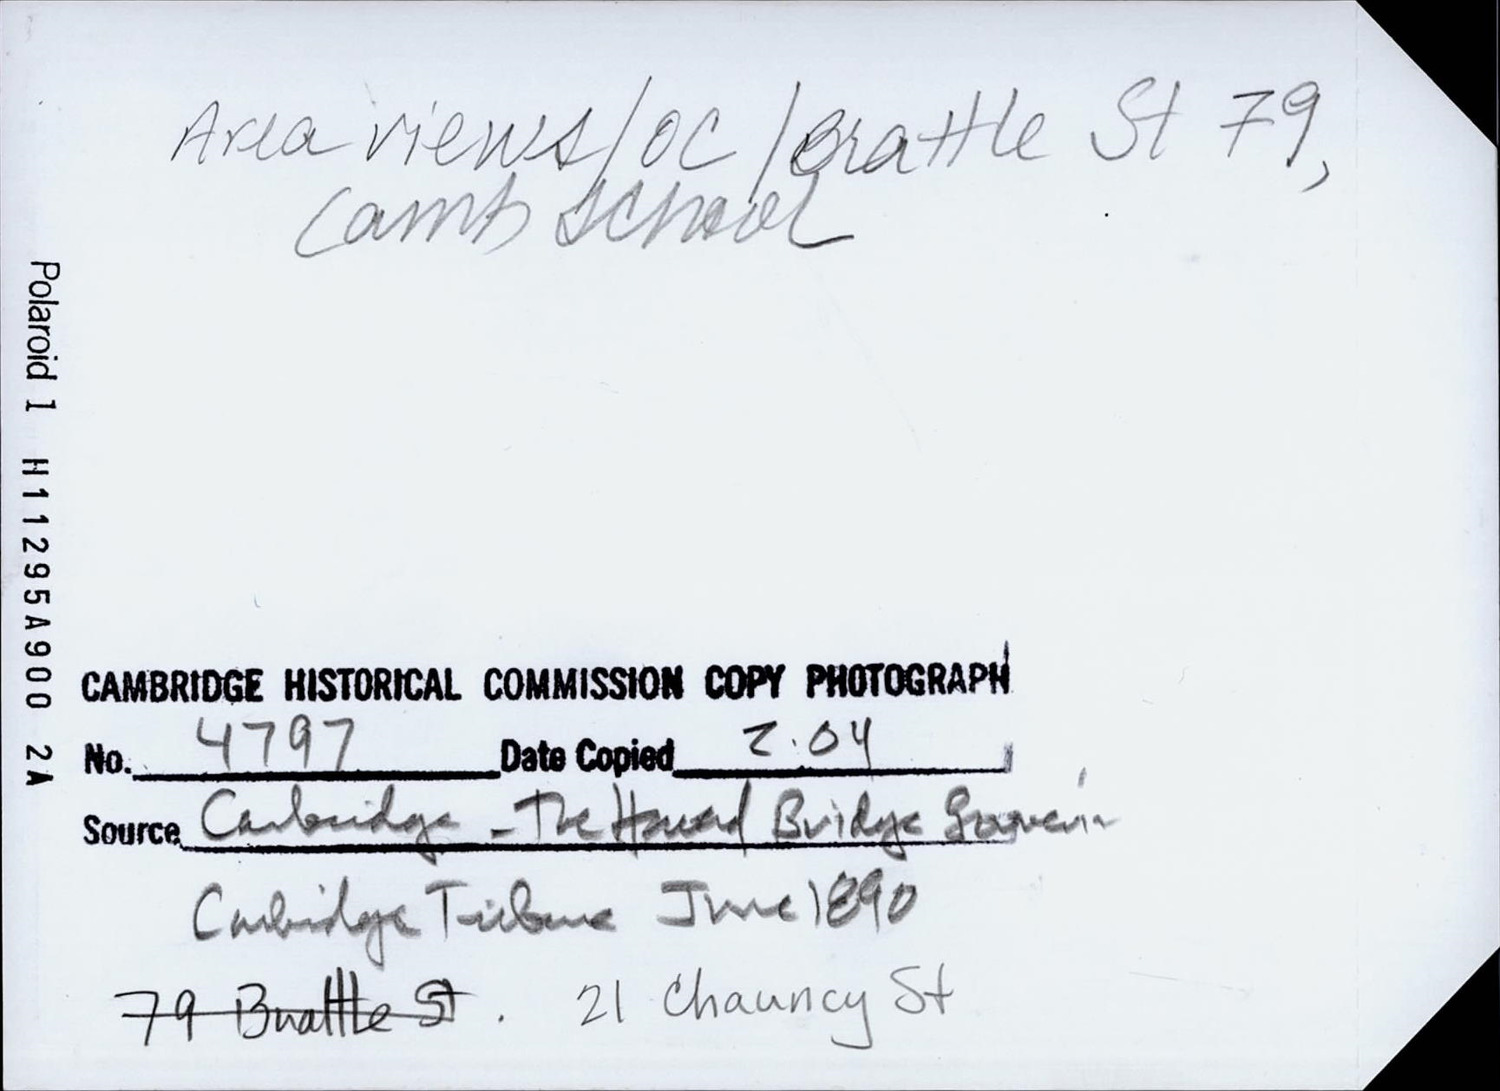 Area views/OC/Brattle St 79,
Camb School
Polaroid 1 H11295A900 2A
CAMBRIDGE HISTORICAL COMMISSION COPY PHOTOGRAPH
No. 4797 Date Copied 2.04
Source Cambridge - The Harvard Bridge Souvenir
Cambridge Tribune June 1890
79 Brattle St. 21 Chauncy St